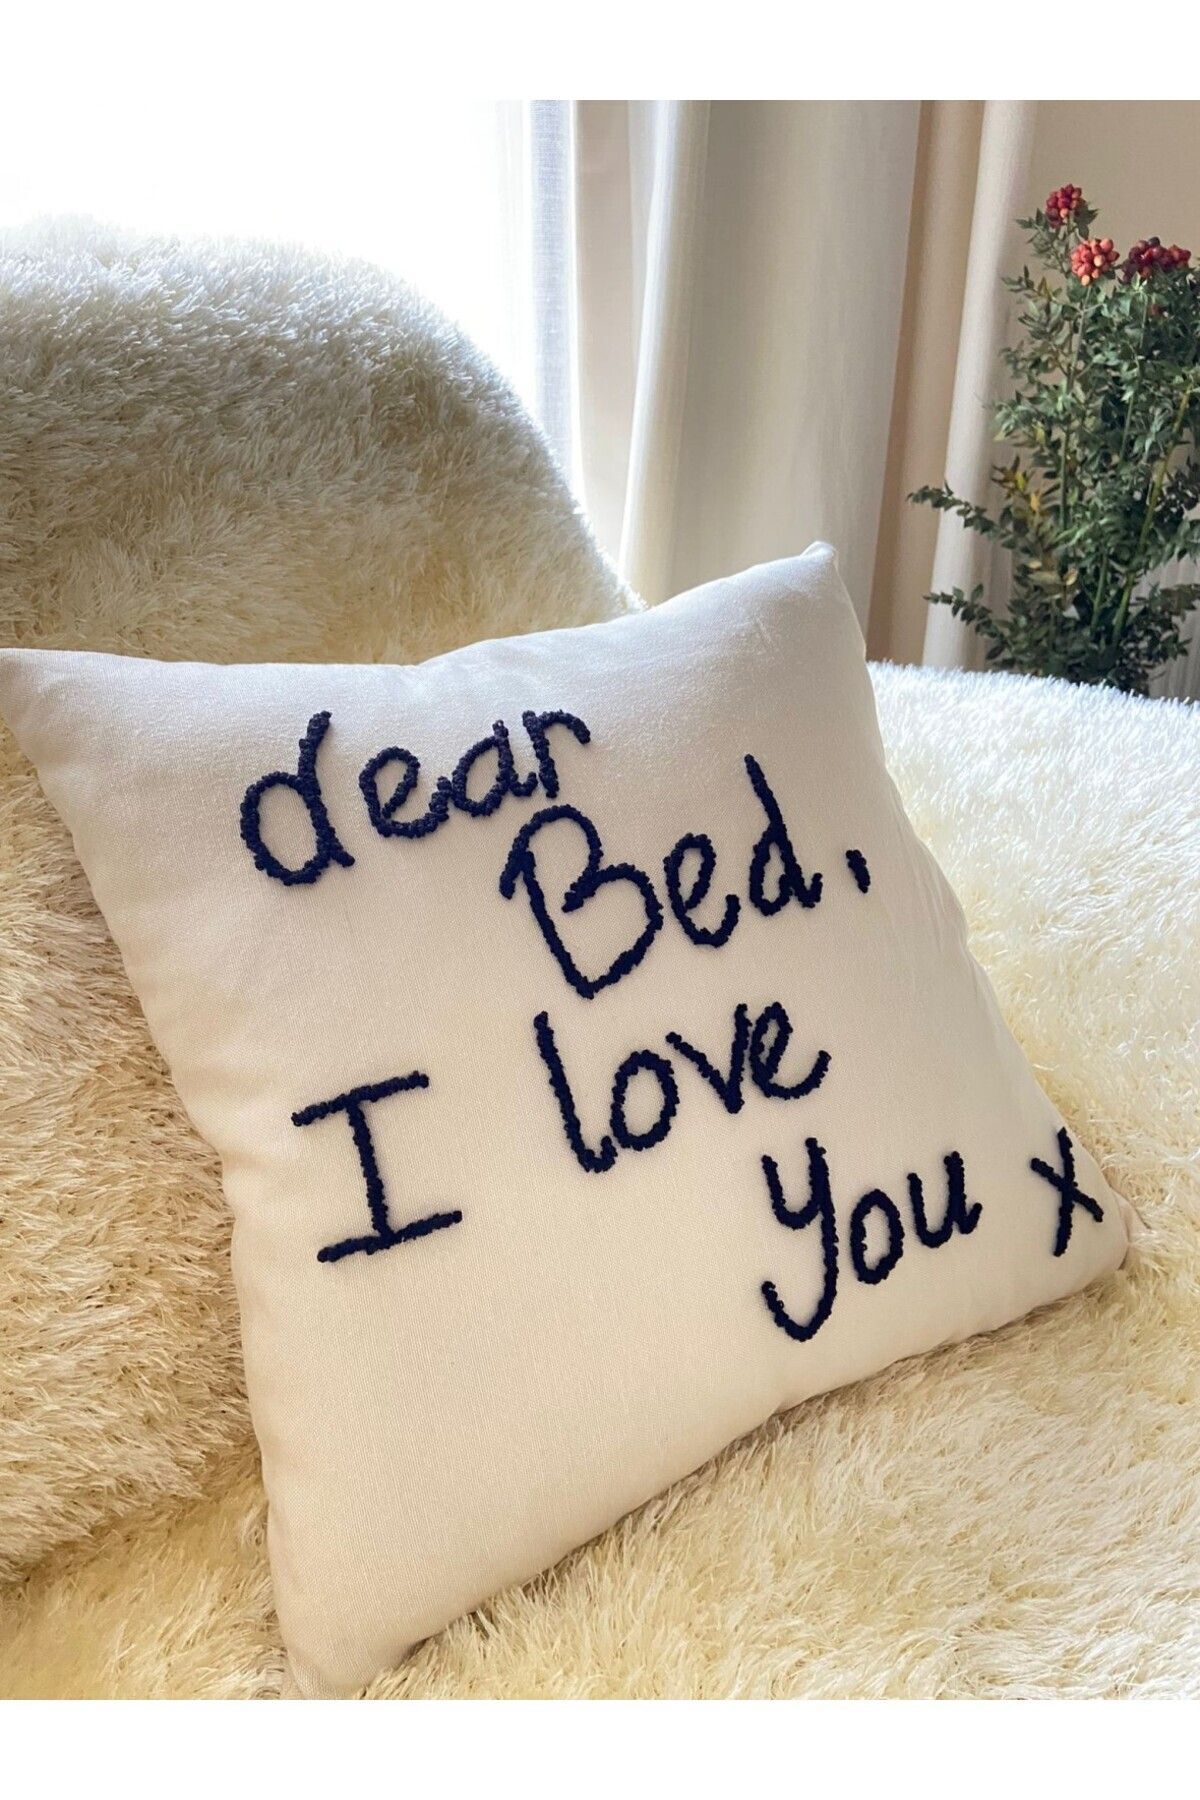 dear
Bed,
I love
You x